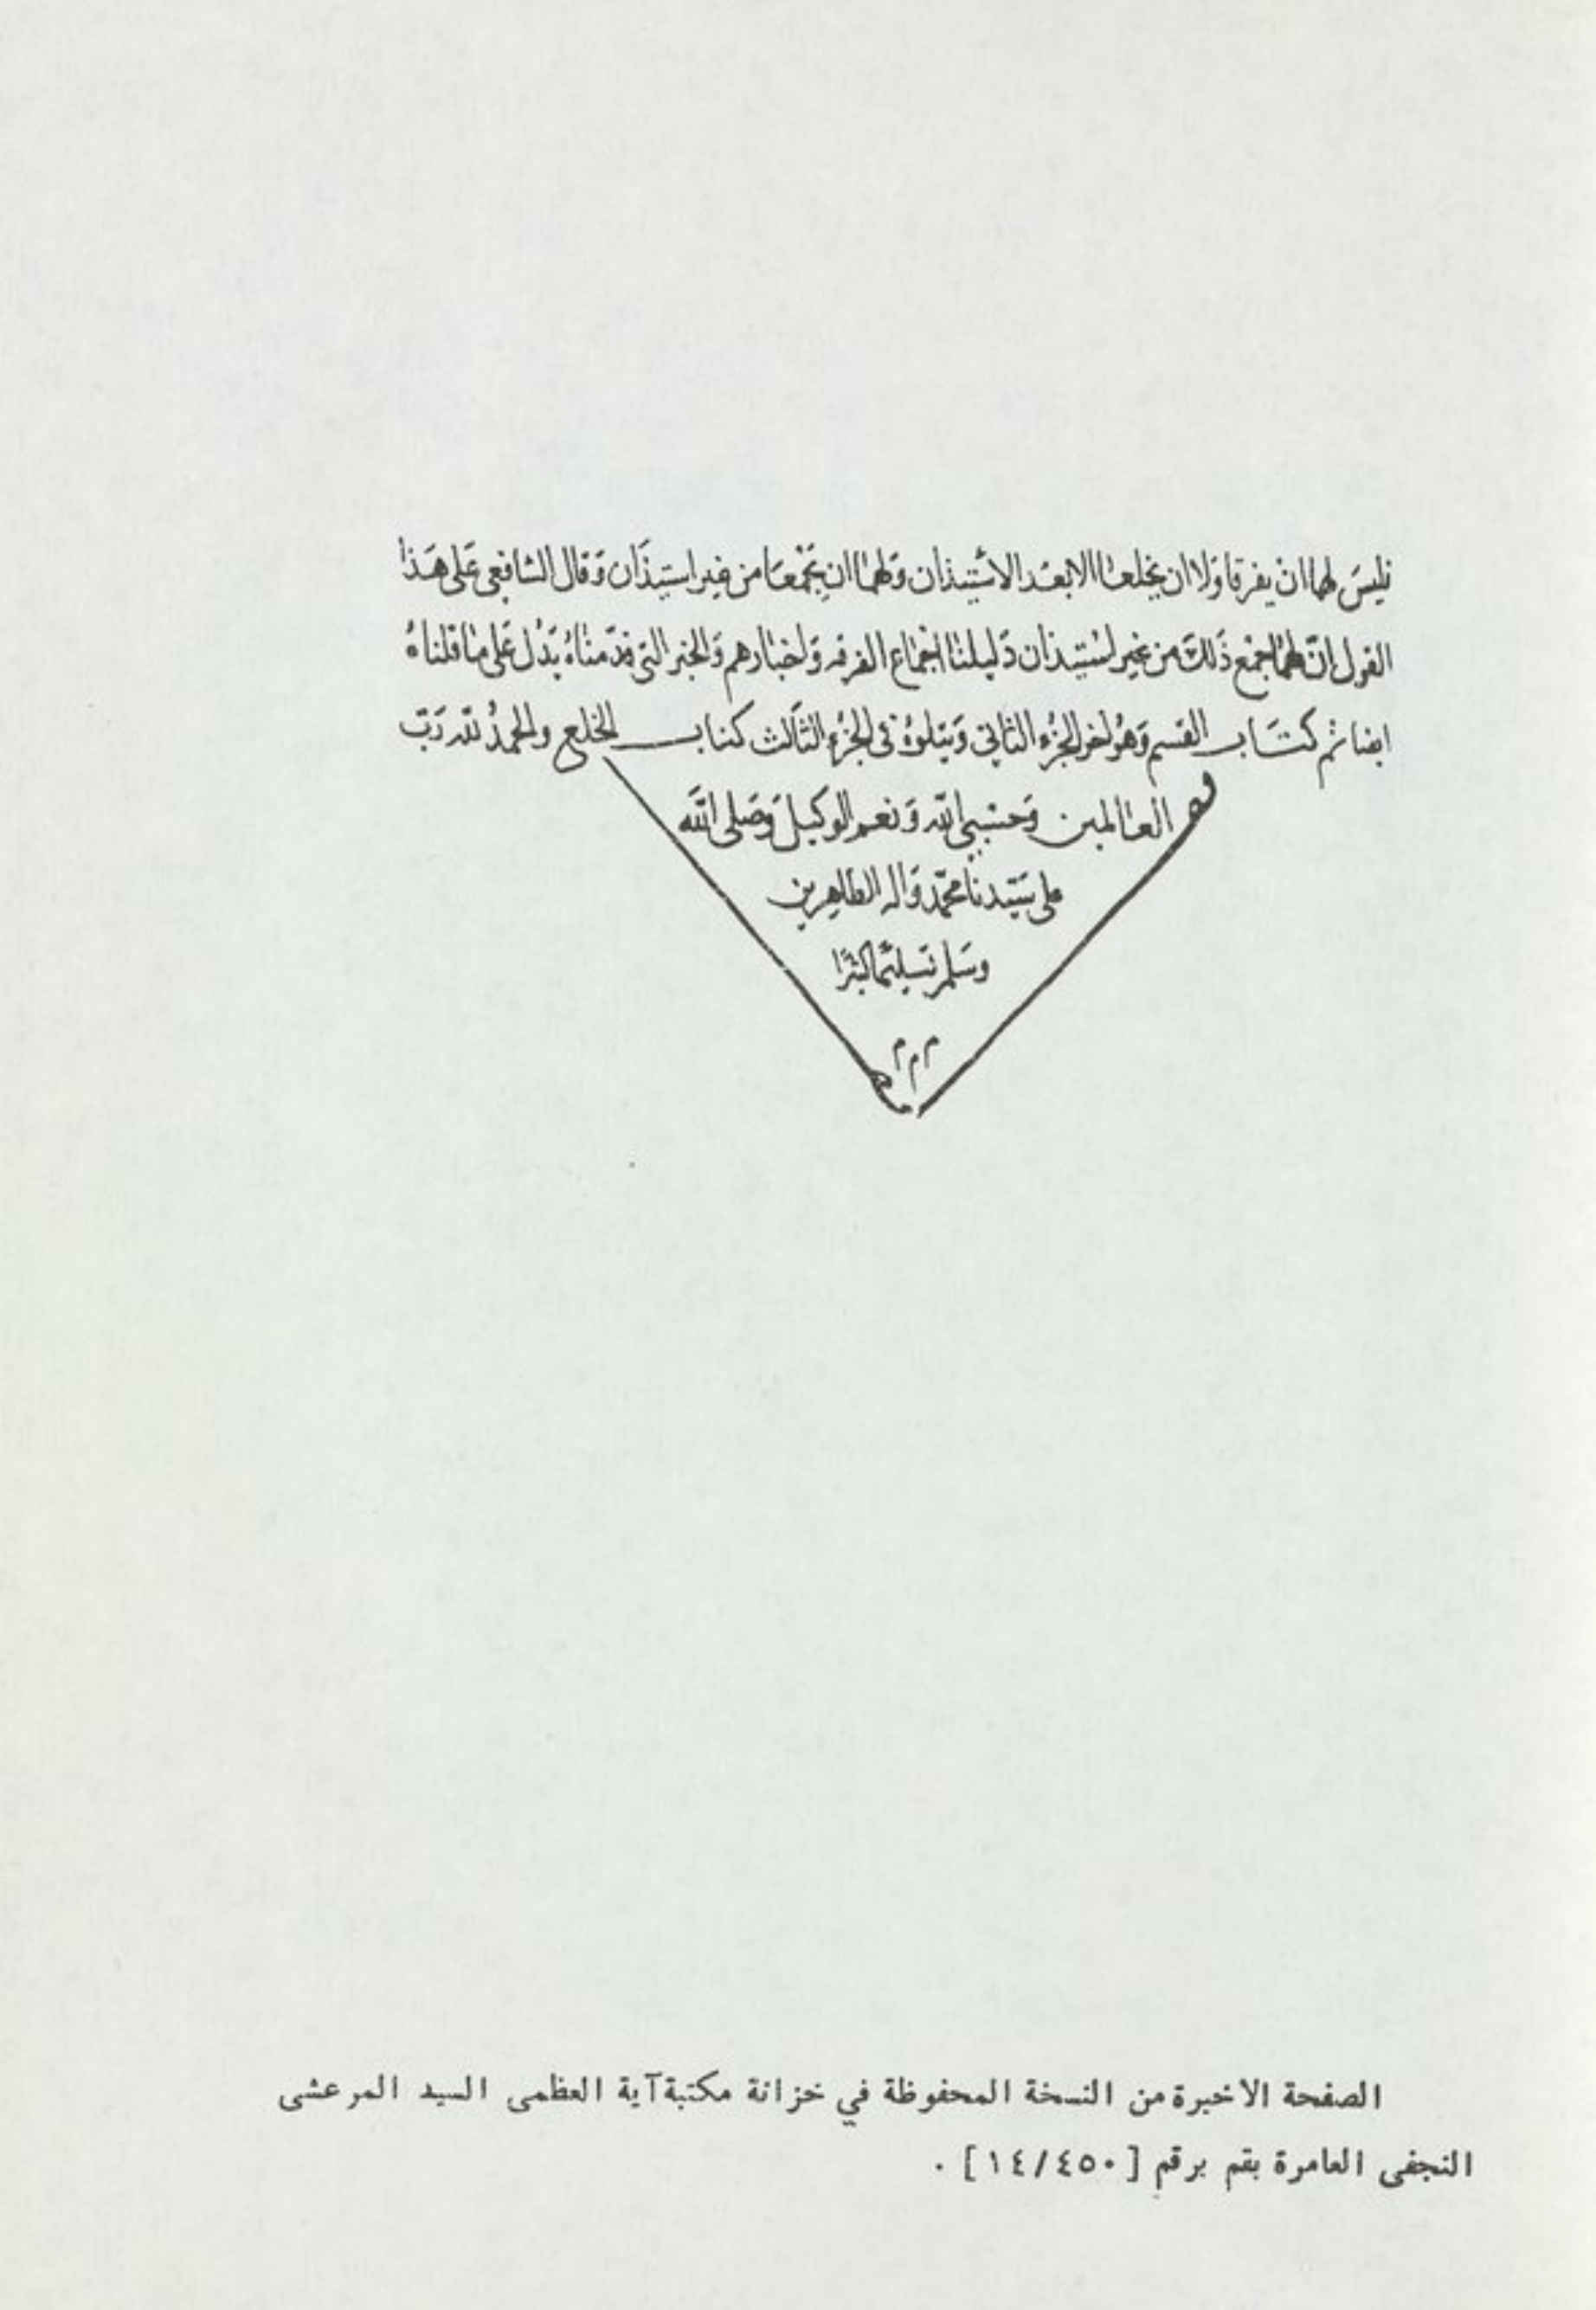 فليسَ لهما ان يفرقا وَلا ان يخلعا الا بعَد الاسْتيذان وَلهما ان يجْمعَا من غير استيذَان وَقال الشافعي عَلى هَذا
القول انّ لهما جمْع ذَلكَ من غير استيذان دَليلنا اجماع الفرقه وَاخبارهم وَالخبر التي قدّمناهُ يَدُل عَلى ما قلناهُ
ايضا تم كتَاب القسم وَهُو اخر الجزُء الثاني وَيتلوهُ في الجزُء الثَالث كتاب الخلع والحمدُ للّه رَبّ
العالمين وَحسْبي اللّه وَنعم الوكيل وَصَلى اللّه
على سَيّدنا محمّد وَاله الطاهرين
وسَلم تسليمًا كثيرًا
م م م
الصفحة الاخيرة من النسخة المحفوظة في خزانة مكتبة آية العظمى السيد المرعشى
النجفى العامرة بقم برقم [١٤/٤٥٠] .